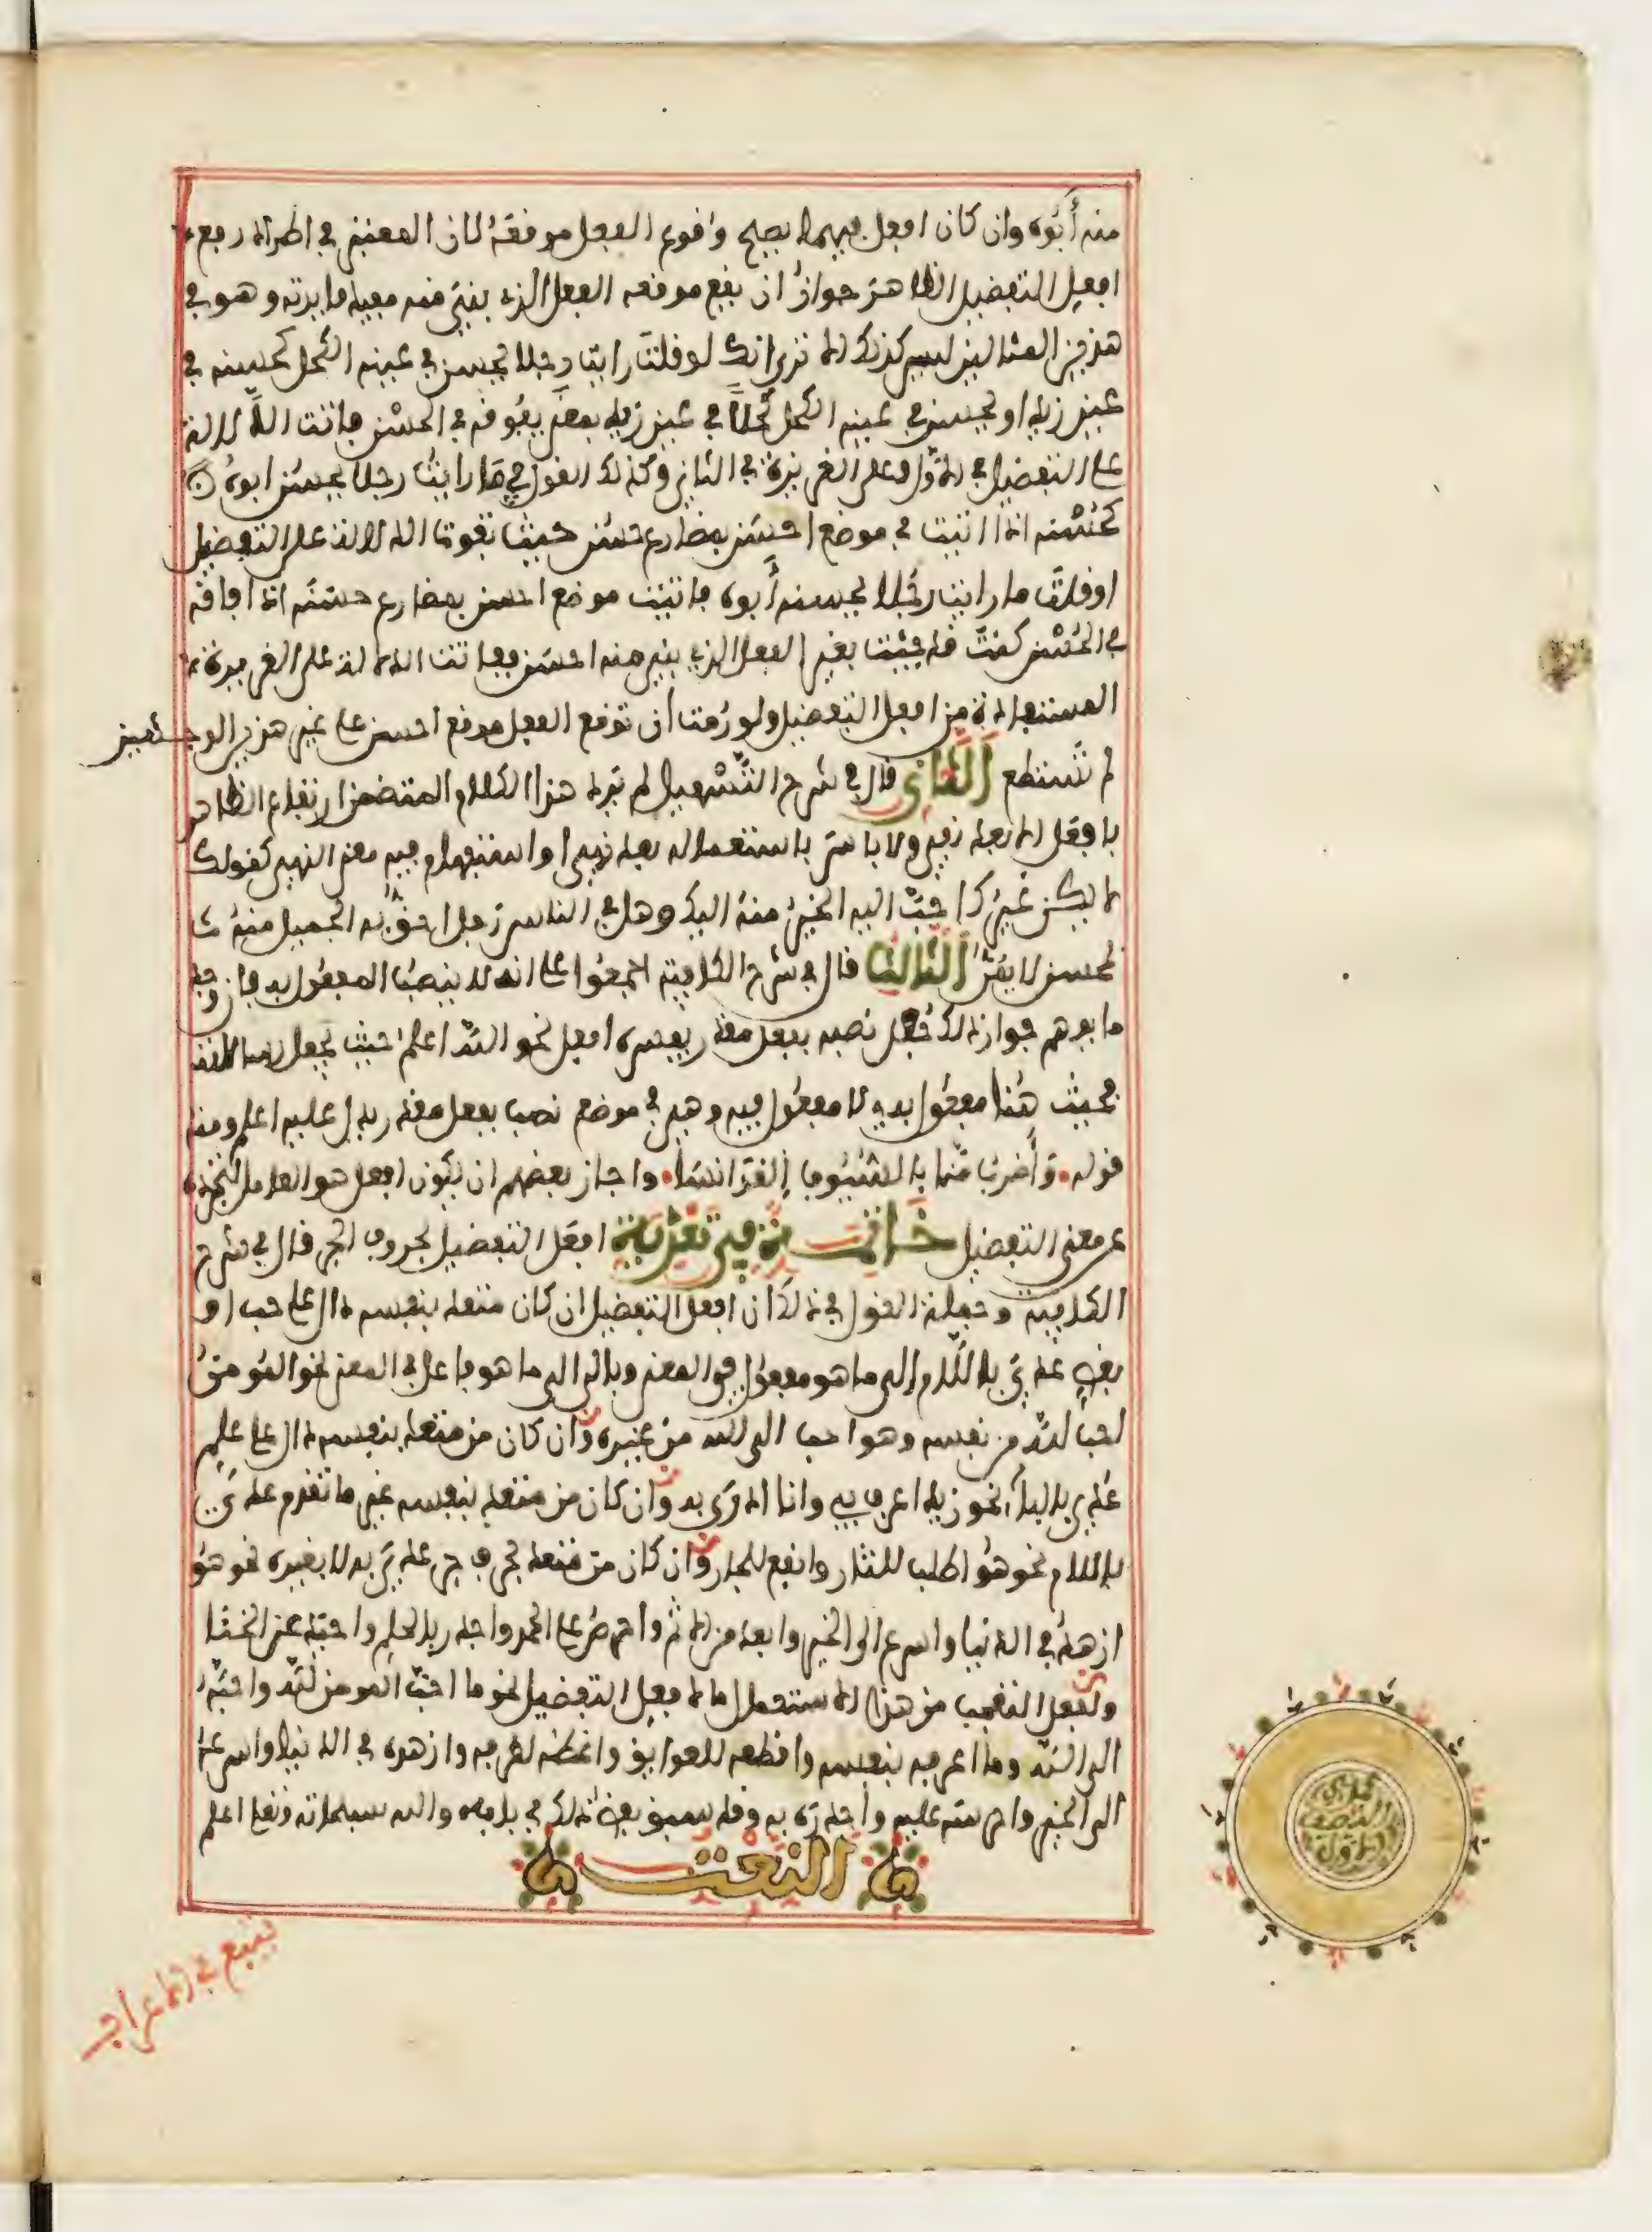 منه أبوه وان كان افعل فيهما يصح وقوع الفعل موقعه لان المعتبر في اطراد رفع
افعل التفضيل الظاهر جواز ان يقع موقعه الفعل الذي يبنى منه مفيدا فايدته وهو في
هذين المثالين ليس كذلك الا ترى انك لو قلت رايت رجلا يحسن في عينه الكحل كحسنه في
عين زيد او يحسن في عينه الكحل كحلا في عين زيد بمعنى يفوقه في الحسن فاتت الدلالة
على التفضيل في الاول وعلى الغريزة في الثاني وكذلك القول في ما رايت رجلا يحسن ابوه
كحسنه اذا اتيت في موضع احسن بمضارع حسن حيث تفوت الدلالة على التفضيل
او قلت ما رايت رجلا يحسنه أبوه فاتيت موضع احسن بمضارع حسنه اذا فاقه
في الحسن كنت قد جيت بغير الفعل الذي يبنى منه احسن ففاتت الدلالة على الغريزة
المستفادة من افعل التفضيل ولو رمت أن توقع الفعل موقع احسن على غير هذين الوجهين
لم تستطع الثاني قال في شرح التسهيل لم يرد هذا الكلام المتضمن ارتفاع الظاهر
بافعل الا بعد نفي ولا باس باستعماله بعد نهي او استفهام فيه معنى النفي كقولك
لا يكن غيرك احب اليه الخير منه اليك وهل في الناس رجل احق به الجميل منه
لمحسن لا يمن الثالث قال في شرح الكافية اجمعوا على انه لا ينصب المفعول به فان وجد
ما يوهم جواز ذلك جعل نصبه بفعل مقدر يفسره افعل نحو الله اعلم حيث يجعل رسالاته
فحيث هنا مفعول به لا مفعول فيه وهي في موضع نصب بفعل مقدر يدل عليه اعلم ومنه
قوله وأضرب منا بالسيوف القوانسا واجاز بعضهم ان يكون افعل هو العامل لتجرده
عن معنى التفضيل خاتمة في تعدية افعل التفضيل بحروف الجر قال في شرح
الكافية وجملة القول في ذلك أن افعل التفضيل ان كان متعد بنفسه دال على حب او
بغض عدي باللام إلى ما هو مفعول في المعنى وبالى الى ما هو فاعل في المعنى نحو المومن
احب لله من نفسه وهو احب الى الله من غيره وان كان من متعد بنفسه دال على علم
عدي بالباء نحو زيد اعرف بي وانا ادرى به وان كان من متعد بنفسه غير ما تقدم عدي
باللام نحو هو اطلب للثار وانفع للجار وان كان من متعد بحرف جر عدي به لا بغيره نحو هو
ازهد في الدنيا واسرع الى الخير وابعد من الاثم واحرص على الحمد واجدر بالحلم واحيد عن الخنا
ولفعل التعجب من هذا الاستعمال ما لافعل التفضيل نحو ما احب المومن لله واحبه
الى الله وما اعرفه بنفسه واقطعه للعوايق واغضه لطرفه وازهده في الدنيا واسرعه
الى الخير واحرصه عليه واجدره به وقد سبق بعض ذلك في بابه والله سبحانه وتعالى اعلم
النعت
النصف
الاول
يتبع في الاعراب